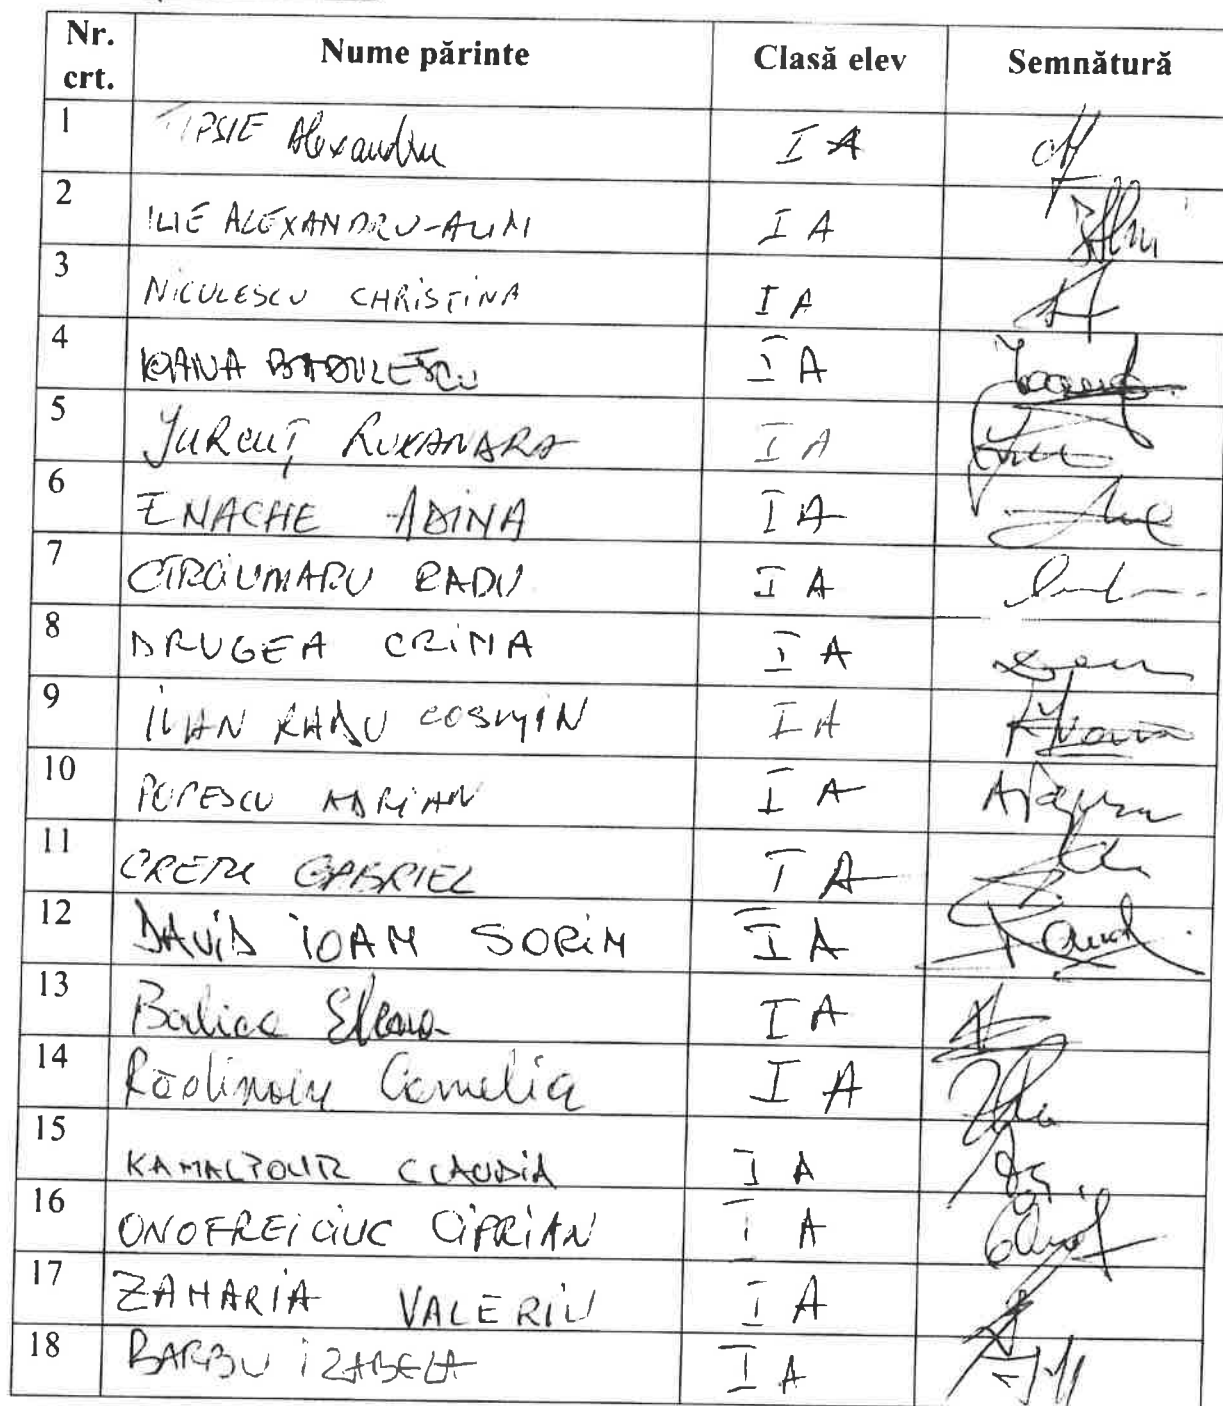 Nr. crt. Nume părinte Clasă elev Semnătură
1 Alexandru I A
2 ILIE ALEXANDRU-ALIN I A
3 NICULESCU CHRISTINA I A
4 IOANA BĂDULESCU I A
5 JURCUȚ RUXANDRA I A
6 ENACHE ADINA I A
7 RADU I A
8 DRUGEA CRINA I A
9 IVAN RADU COSMIN I A
10 POPESCU ADRIAN I A
11 CREȚU GABRIEL I A
12 DAVID IOAN SORIN I A
13 Elena I A
14 Camelia I A
15 KAMALPOUR CLAUDIA I A
16 ONOFREICIUC CIPRIAN I A
17 ZAHARIA VALERIU I A
18 BARBU IZABELA I A